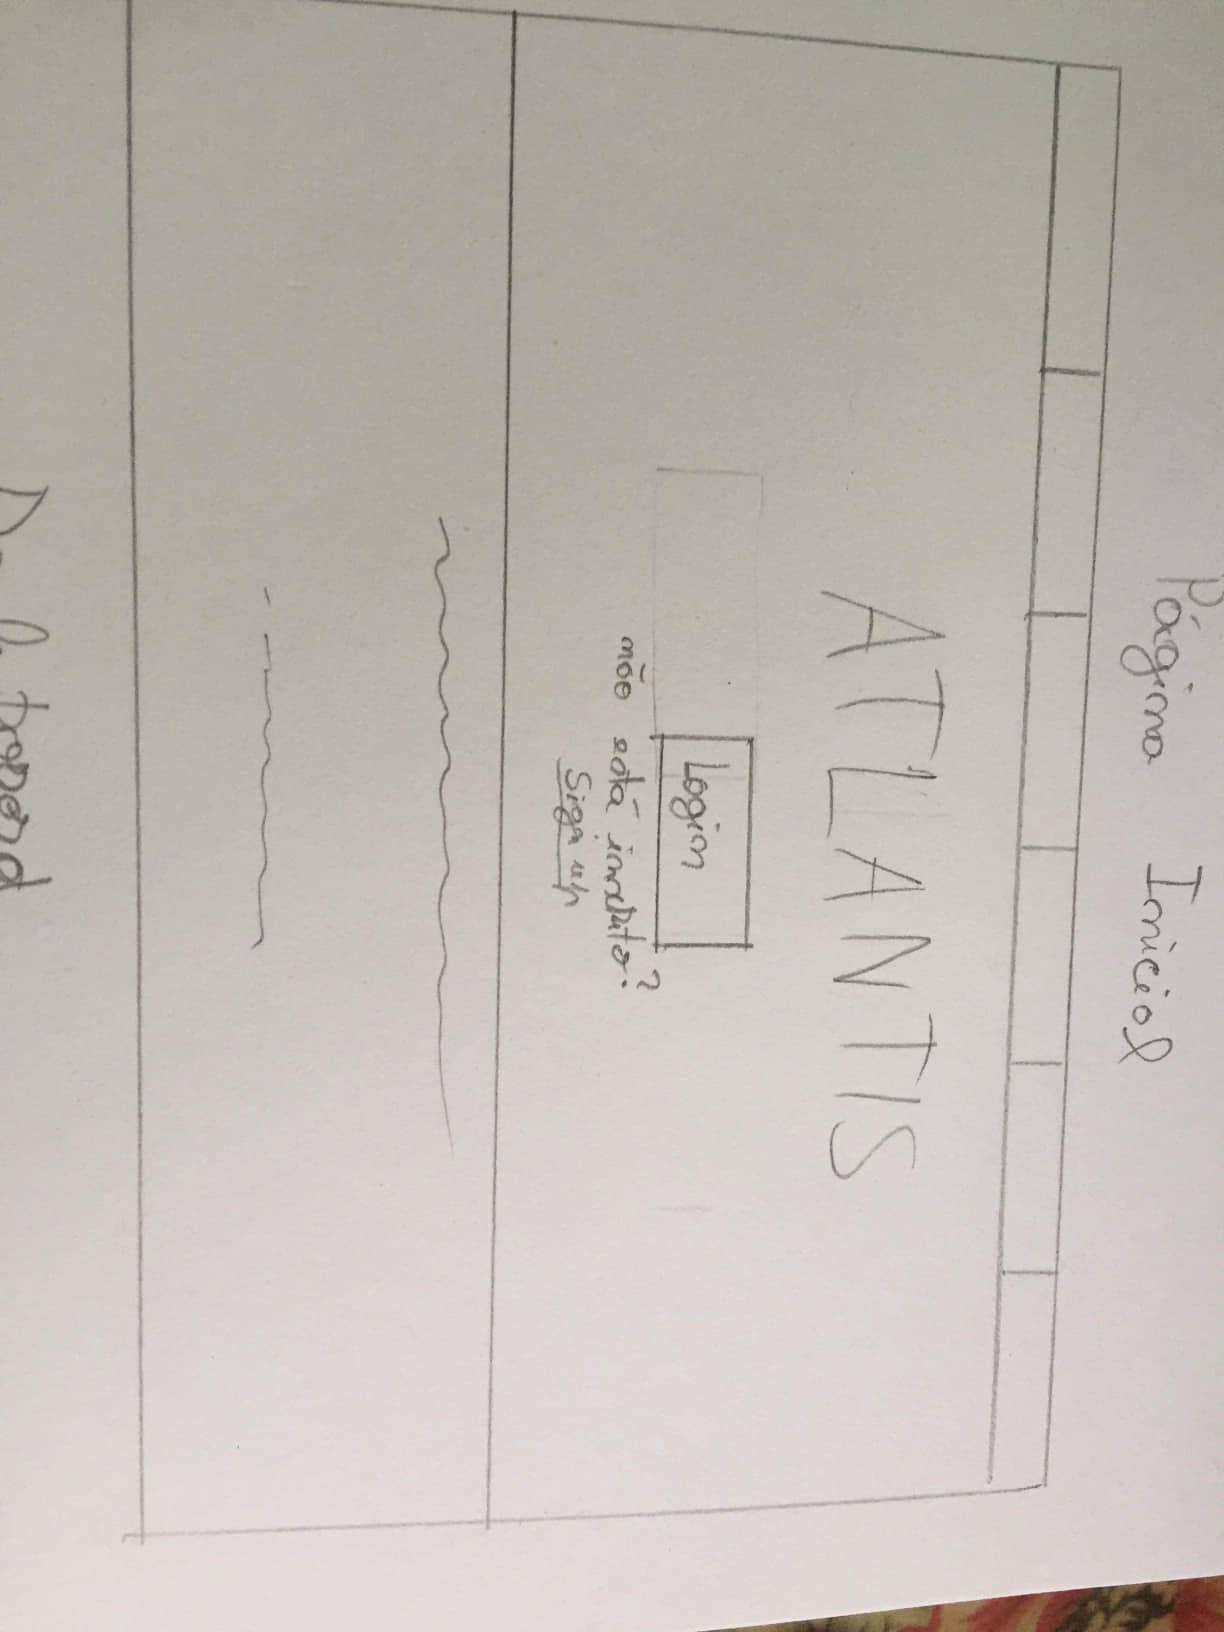 Página Inicial
ATLANTIS
Login
não está inscrito?
Sign up